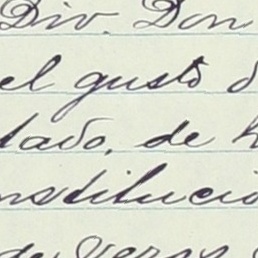 Div. Don
el gusto d
tado, de h
nstitució
de veras